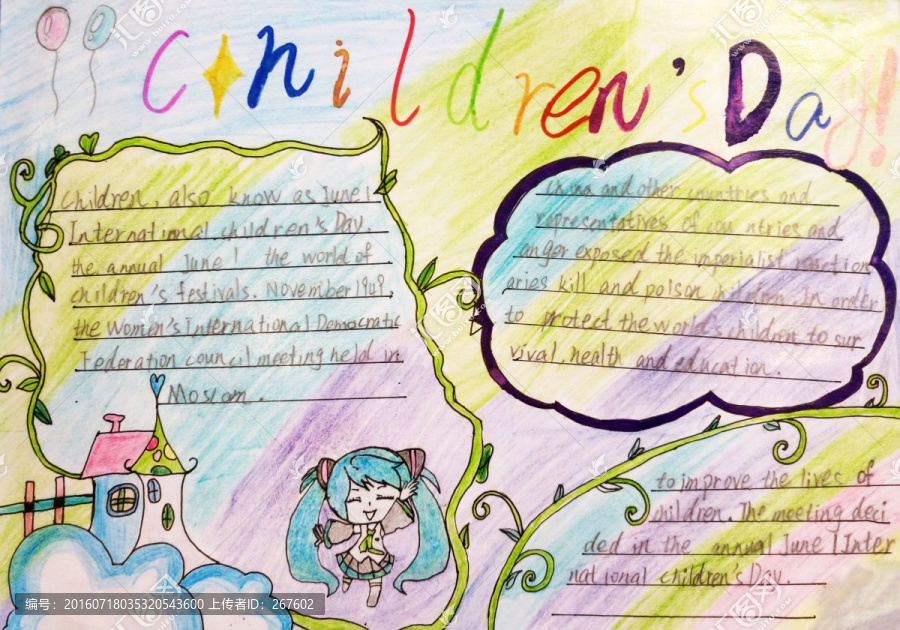 Children's Day!
Children, also know as June 1
International children's Day.
the annual June 1 the world of
children's festivals. November 1949,
the Women's International Democratic
Federation council meeting held in
Moscom.
China and other countries and
representatives of countries and
anger exposed the imperialist reaction
aries kill and poison children. In order
to protect the world's children to sur
vival. health and education.
to improve the lives of
children. The meeting deci
ded in the annual June 1 Inter
national children's Day.
编号：20160718035320543600 上传者ID：267602